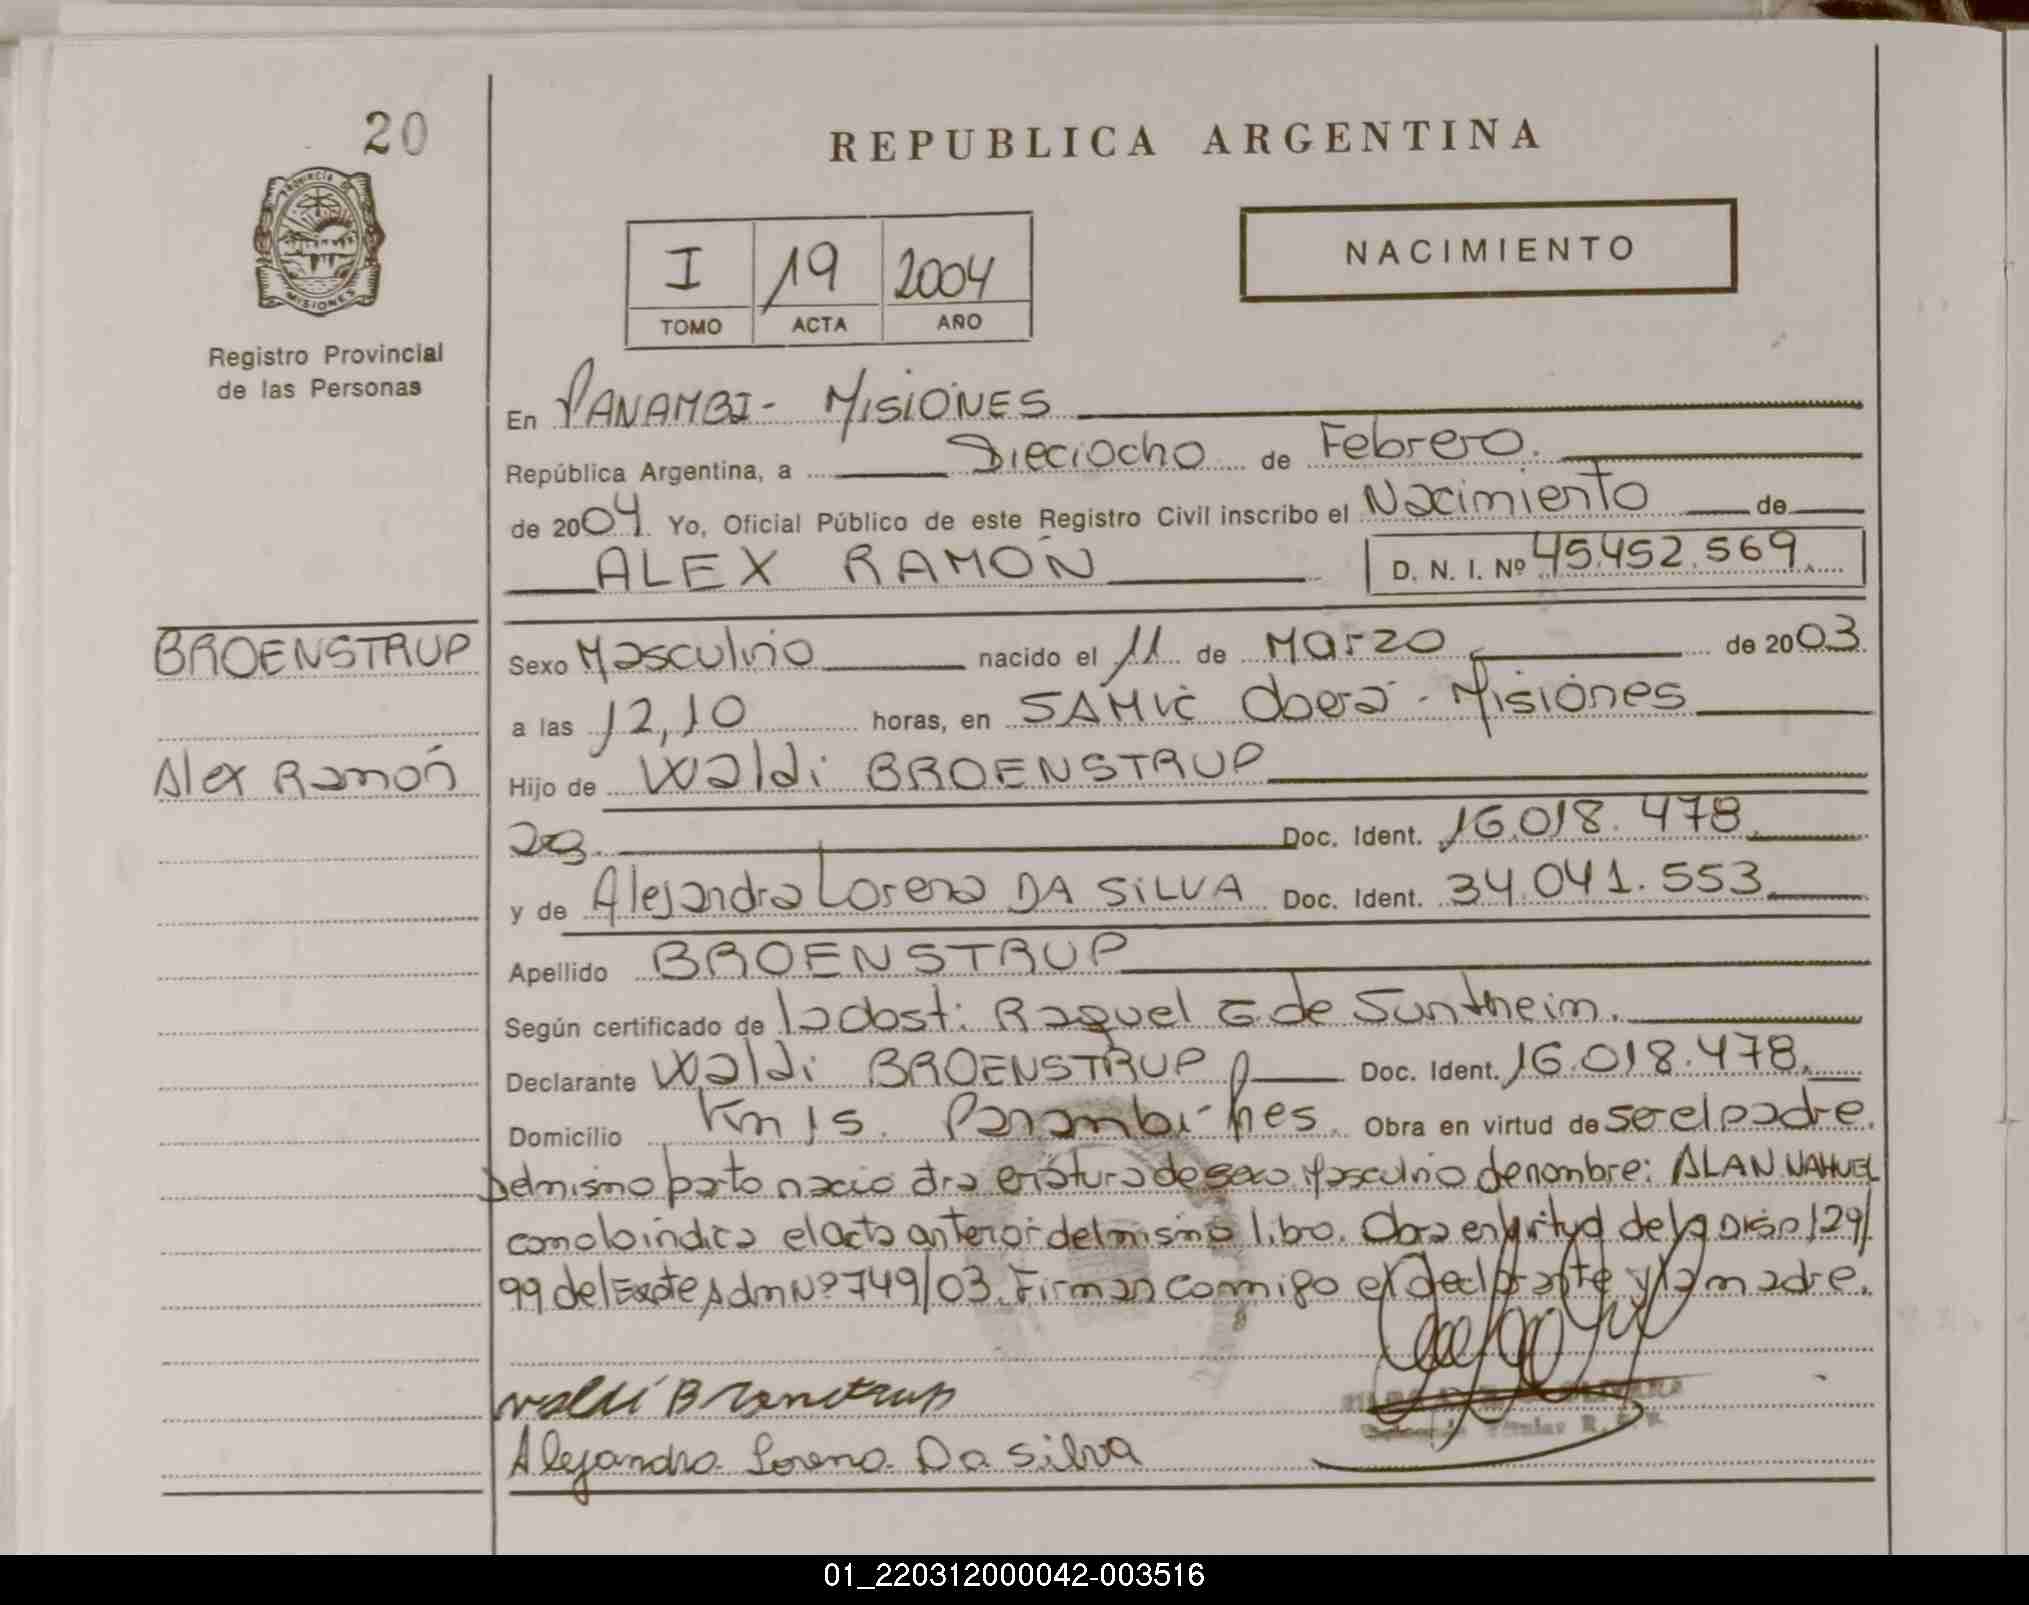 20
REPUBLICA ARGENTINA
PROVINCIA DE
MISIONES
Registro Provincial
de las Personas
I 19 2004
TOMO ACTA AÑO
NACIMIENTO
En PANAMBI - MISIONES
República Argentina, a Dieciocho de Febrero.
de 2004 Yo, Oficial Público de este Registro Civil inscribo el Nacimiento de
ALEX RAMÓN D. N. I. Nº 45.452.569.
BROENSTRUP
Sexo Masculino nacido el 11 de Marzo de 2003.
a las 12,10 horas, en SAMIC Oberá - Misiones
Alex Ramón
Hijo de Waldi BROENSTRUP
Doc. Ident. 16.018.478.
y de Alejandra Lorena DA SILVA Doc. Ident. 34.041.553.
Apellido BROENSTRUP
Según certificado de la obst: Raquel G de Suntheim.
Declarante Waldi BROENSTRUP Doc. Ident. 16.018.478.
Domicilio Km 15. Panambi - Mnes. Obra en virtud de ser el padre.
Del mismo parto nacio otra criatura de sexo Masculino de nombre: ALAN NAHUEL
como lo indica el acta anterior del mismo libro. Obra en virtud de la Disp 129/
99 del Expte Adm Nº 749/03. Firman conmigo el declarante y la madre.
Waldi Broenstrup
Alejandra Lorena Da Silva
Titular R. P. P.
01_220312000042-003516